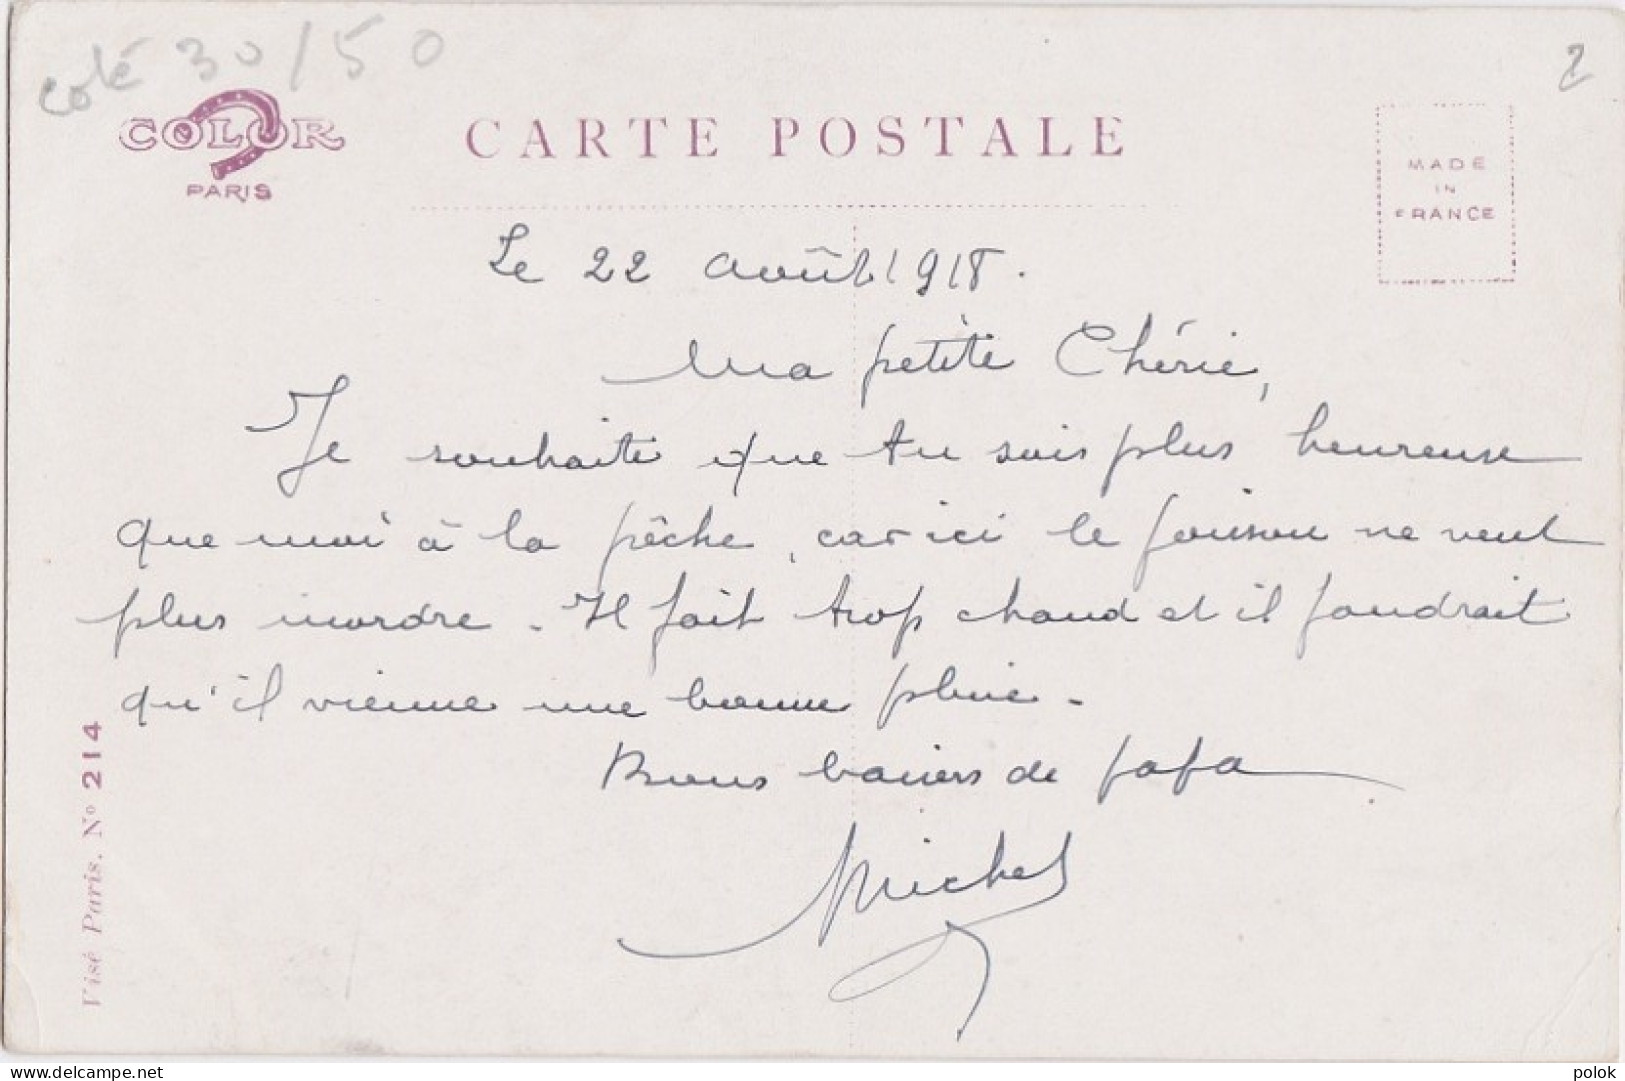 coté 30/50
2
COLOR
PARIS
CARTE POSTALE
MADE
IN
FRANCE
Le 22 août 1918.
Ma petite Chérie,
Je souhaite que tu sois plus heureuse
que moi à la pêche, car ici le poisson ne veut
plus mordre. Il fait trop chaud et il faudrait
qu'il vienne une bonne pluie.
Bons baisers de papa
Michel
Visé Paris. No 214
delcampe.net
polok